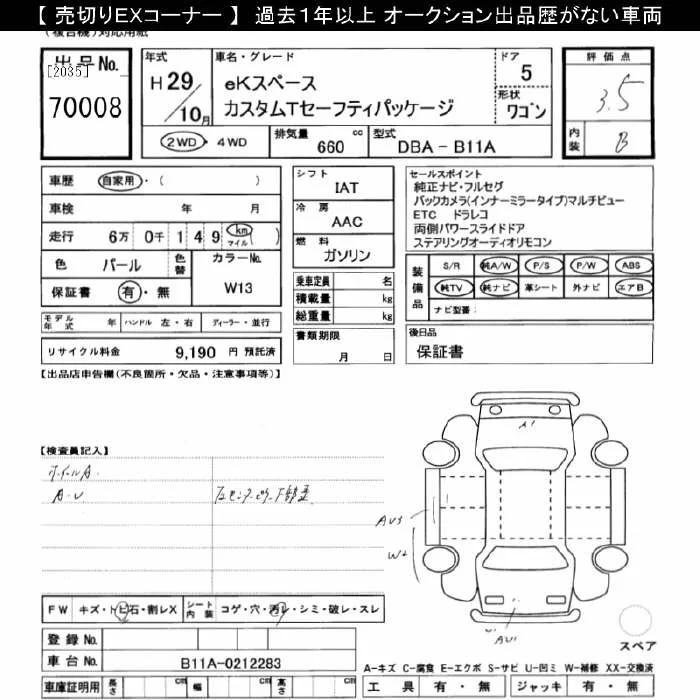 【 売切りEXコーナー 】 過去1年以上 オークション出品歴がない車両
(複合機)対応用紙
出品No.
[2035]
70008
年式
H 29/10月
車名・グレード
eKスペース
カスタムTセーフティパッケージ
ドア
5
形状
ワゴン
評価点
3.5
内装
B
2WD・4WD
排気量 660 cc
型式 DBA - B11A
車歴 自家用・( )
車検 年 月
走行 6万 0千 1 4 9 km マイル ( )
色 パール 色替
カラーNo. W13
保証書 有・無
モデル年式 年 ハンドル 左・右 ディーラー・並行
リサイクル料金 9,190 円 預託済
シフト
IAT
冷房
AAC
燃料
ガソリン
乗車定員 名
積載量 kg
総重量 kg
書類期限
月 日
セールスポイント
純正ナビ・フルセグ
バックカメラ(インナーミラータイプ)マルチビュー
ETC ドラレコ
両側パワースライドドア
ステアリングオーディオリモコン
装備品
S/R 純A/W P/S P/W ABS
純TV 純ナビ 革シート 外ナビ エアB
ナビ型番:
後日品
保証書
【出品店申告欄(不良箇所・欠品・注意事項等)】
【検査員記入】
ホイールA.
A・U
A1
AU3
W2
AU1
FW キズ・トビ石・割レX
シート内装 コゲ・穴・汚レ・シミ・破レ・スレ
登録No.
車台No. B11A-0212283
車庫証明用 長さ cm 幅 cm 高さ cm
スペア
A-キズ C-腐食 E-エクボ S-サビ U-凹ミ W-補修 XX-交換済
工具 有・無 ジャッキ 有・無